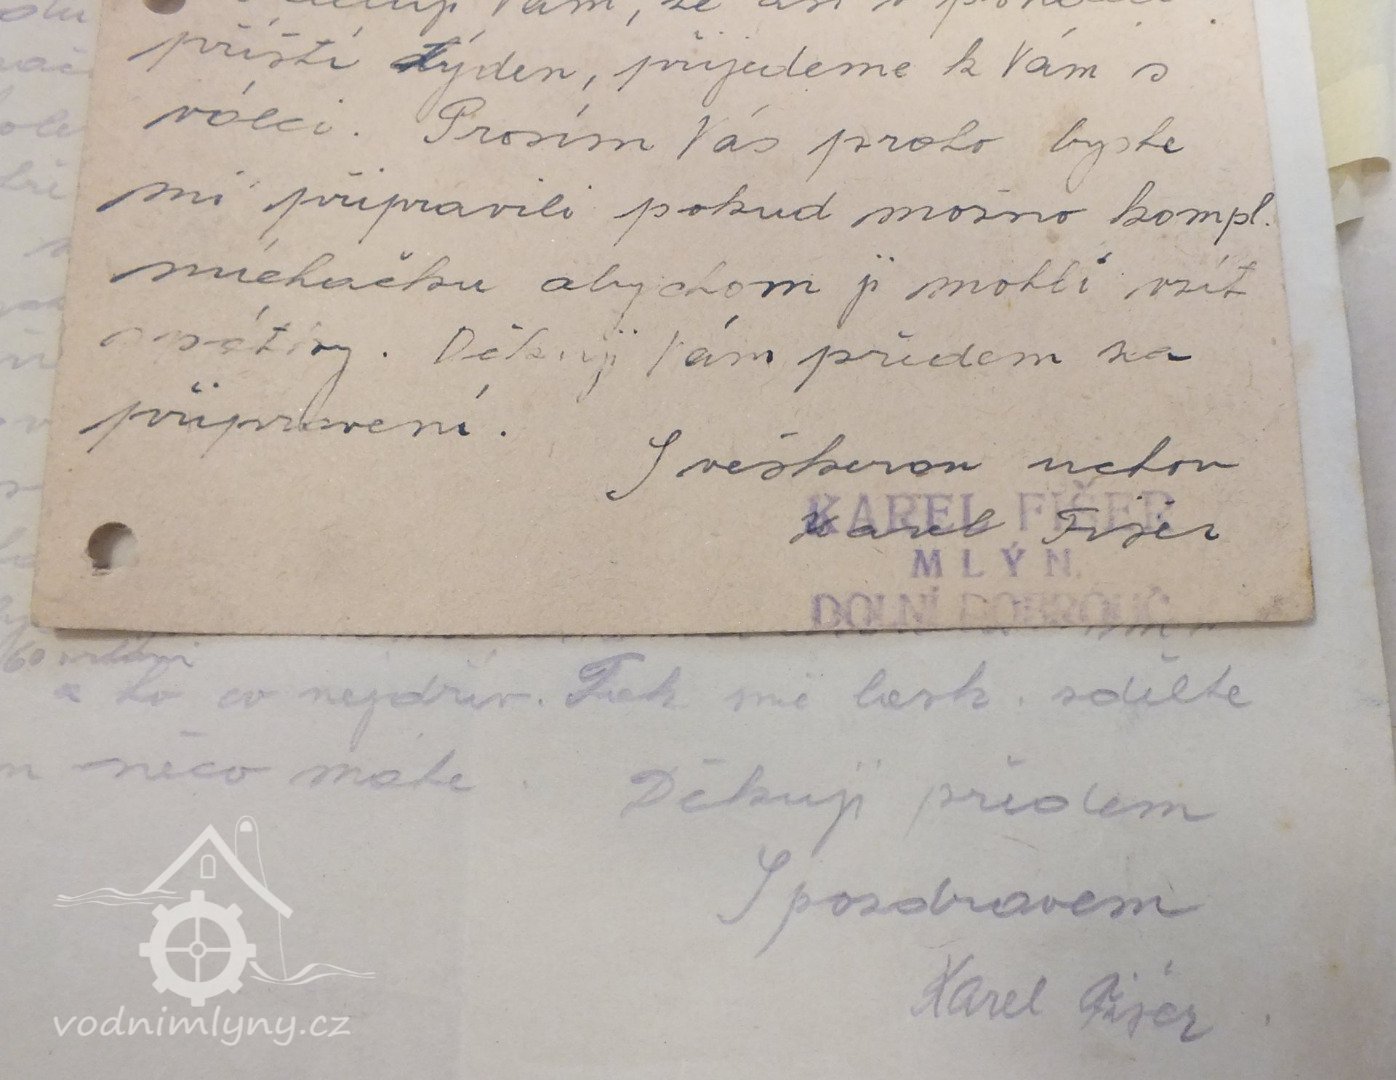 Vám, že
příští týden, přijedeme k Vám s
válci. Prosím Vás proto byste
mi připravili pokud možno kompl.
míchačku abychom ji mohli vzít
Děkuji Vám předem za
připravení.
S veškerou uctou
KAREL FIŠER
Karel Fišer
MLÝN.
DOLNÍ DOBROUČ
a to co nejdřív. Tak mě lask. sdělte
něco máte.
Děkuji předem
S pozdravem
Karel Fišer
vodnimlyny.cz